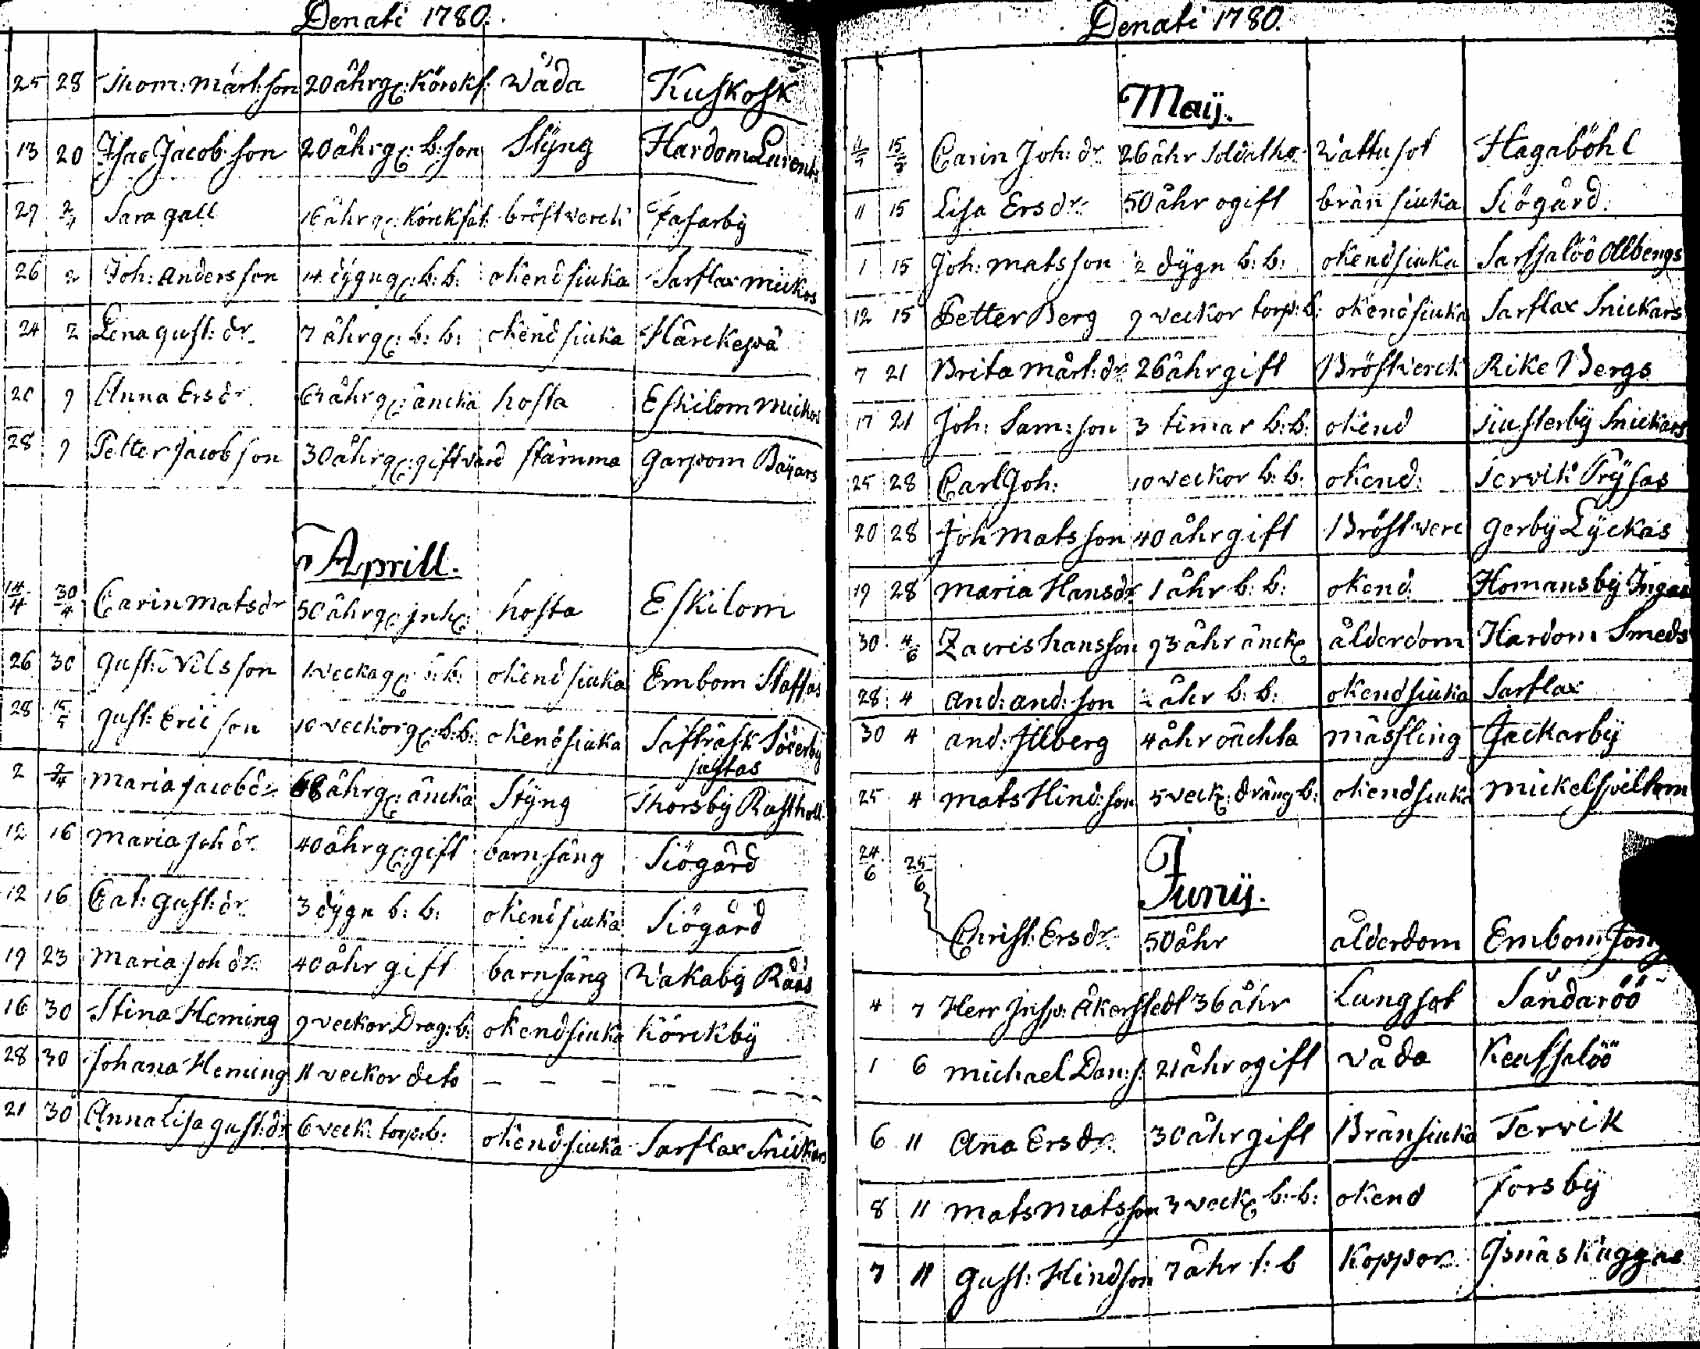 Denati 1780.
25 28 Thom: Märt:son 20 åhrg: Körckf: Wåda Kuskosk
13 20 Isac Jacob:son 20 åhrg: b:son Styng Hardom Larents
29 2/4 Sara gall 16 åhrg: bröstverck Fasarby
26 2 Joh: Andersson 14 dygng: b:b: okend siuka Sarflax Mickos
24 2 Lena Gust:dr 7 åhrg: b:b: okend siuka Härckepä
20 9 Anna Ersdr 63 åhrg: äncka hosta Eskilom Mickos
28 9 Petter Jacobson 30 åhrg: gift stämma Garpom Bäyars
Aprill.
14/4 30/4 Carin Matsdr 50 åhrg: inh: hosta Eskilom
26 30 Gust: Nilsson 1 veckag: b:b: okend siuka Embom Staffas
28 Gust: Ericson 10 veckorg: b:b: okend siuka Säfträsk Söderby
2 Maria Jacobdr 68 åhrg: äncka Styng Thorsby Rusthåll
12 16 Maria Joh dr 40 åhrg: gift barnsäng Siögård
12 16 Cat: Gust:dr 3 dygn b:b: okend siuka Siögård
19 23 Maria Joh dr 40 åhr gift barnsäng Wakaby Rååls
16 30 Stina Heming 9 veckor Drag:b: okend siuka Körckby
28 30 Johana Heming 11 veckor deto — — — — — —
21 30 Anna Lisa Gust:dr 6 veck: torp:b: okend siuka Sarflax Snickars
Denati 1780.
Maij.
Carin Joh:dr 26 åhr Soldathu: Wattusot Hagaböhl
11 15 Lisa Ersdr: 50 åhr ogift bränsiuka Siögård:
1 15 Joh: Matsson 2 dygn b:b: okend siuka Sarssalöö Allbergs
12 15 Petter Berg 9 veckor torp:b: okend siuka Sarflax Snickars
7 21 Brita Märt:dr 26 åhr gift Bröstverck Rike Bergs
17 21 Joh: Sam:son 3 timar b:b: okend Siusterby Snickars
25 28 Carl Joh: 10 veckor b:b: okend: Tervik Trysas
20 28 Joh Matsson 40 åhr gift Bröstverc Gerby Lyckas
19 28 Maria Hansdr 1 åhr b:b: okend Homansby Ingas
30 4/6 Zacris Hansson 93 åhr änck: ålderdom Hardom Smeds
28 4 And: And:son ½ åhr b:b: okend siuka Sarflax
30 4 And: Illberg 4 åhr oächta mässling Jackarby
25 4 Mats Hind:son 5 veck: dräng b: okend siuka Mickelspiltom
24/6 25/6
Junij.
Christ: Ersdr 50 åhr ålderdom Embom
4 7 Herr Insp: Åkerstedt 36 åhr Lungsot Sandaröö
1 6 Michael Dan:s: 21 åhr ogift våda Keassalöö
6 11 Ana Ersdr: 30 åhr gift Bränsiuka Tervik
8 11 Mats Matsson 3 veck: b:b: okend Forsby
7 11 Gust: Hindson 7 åhr t:b Koppor Isnäs Kuggas